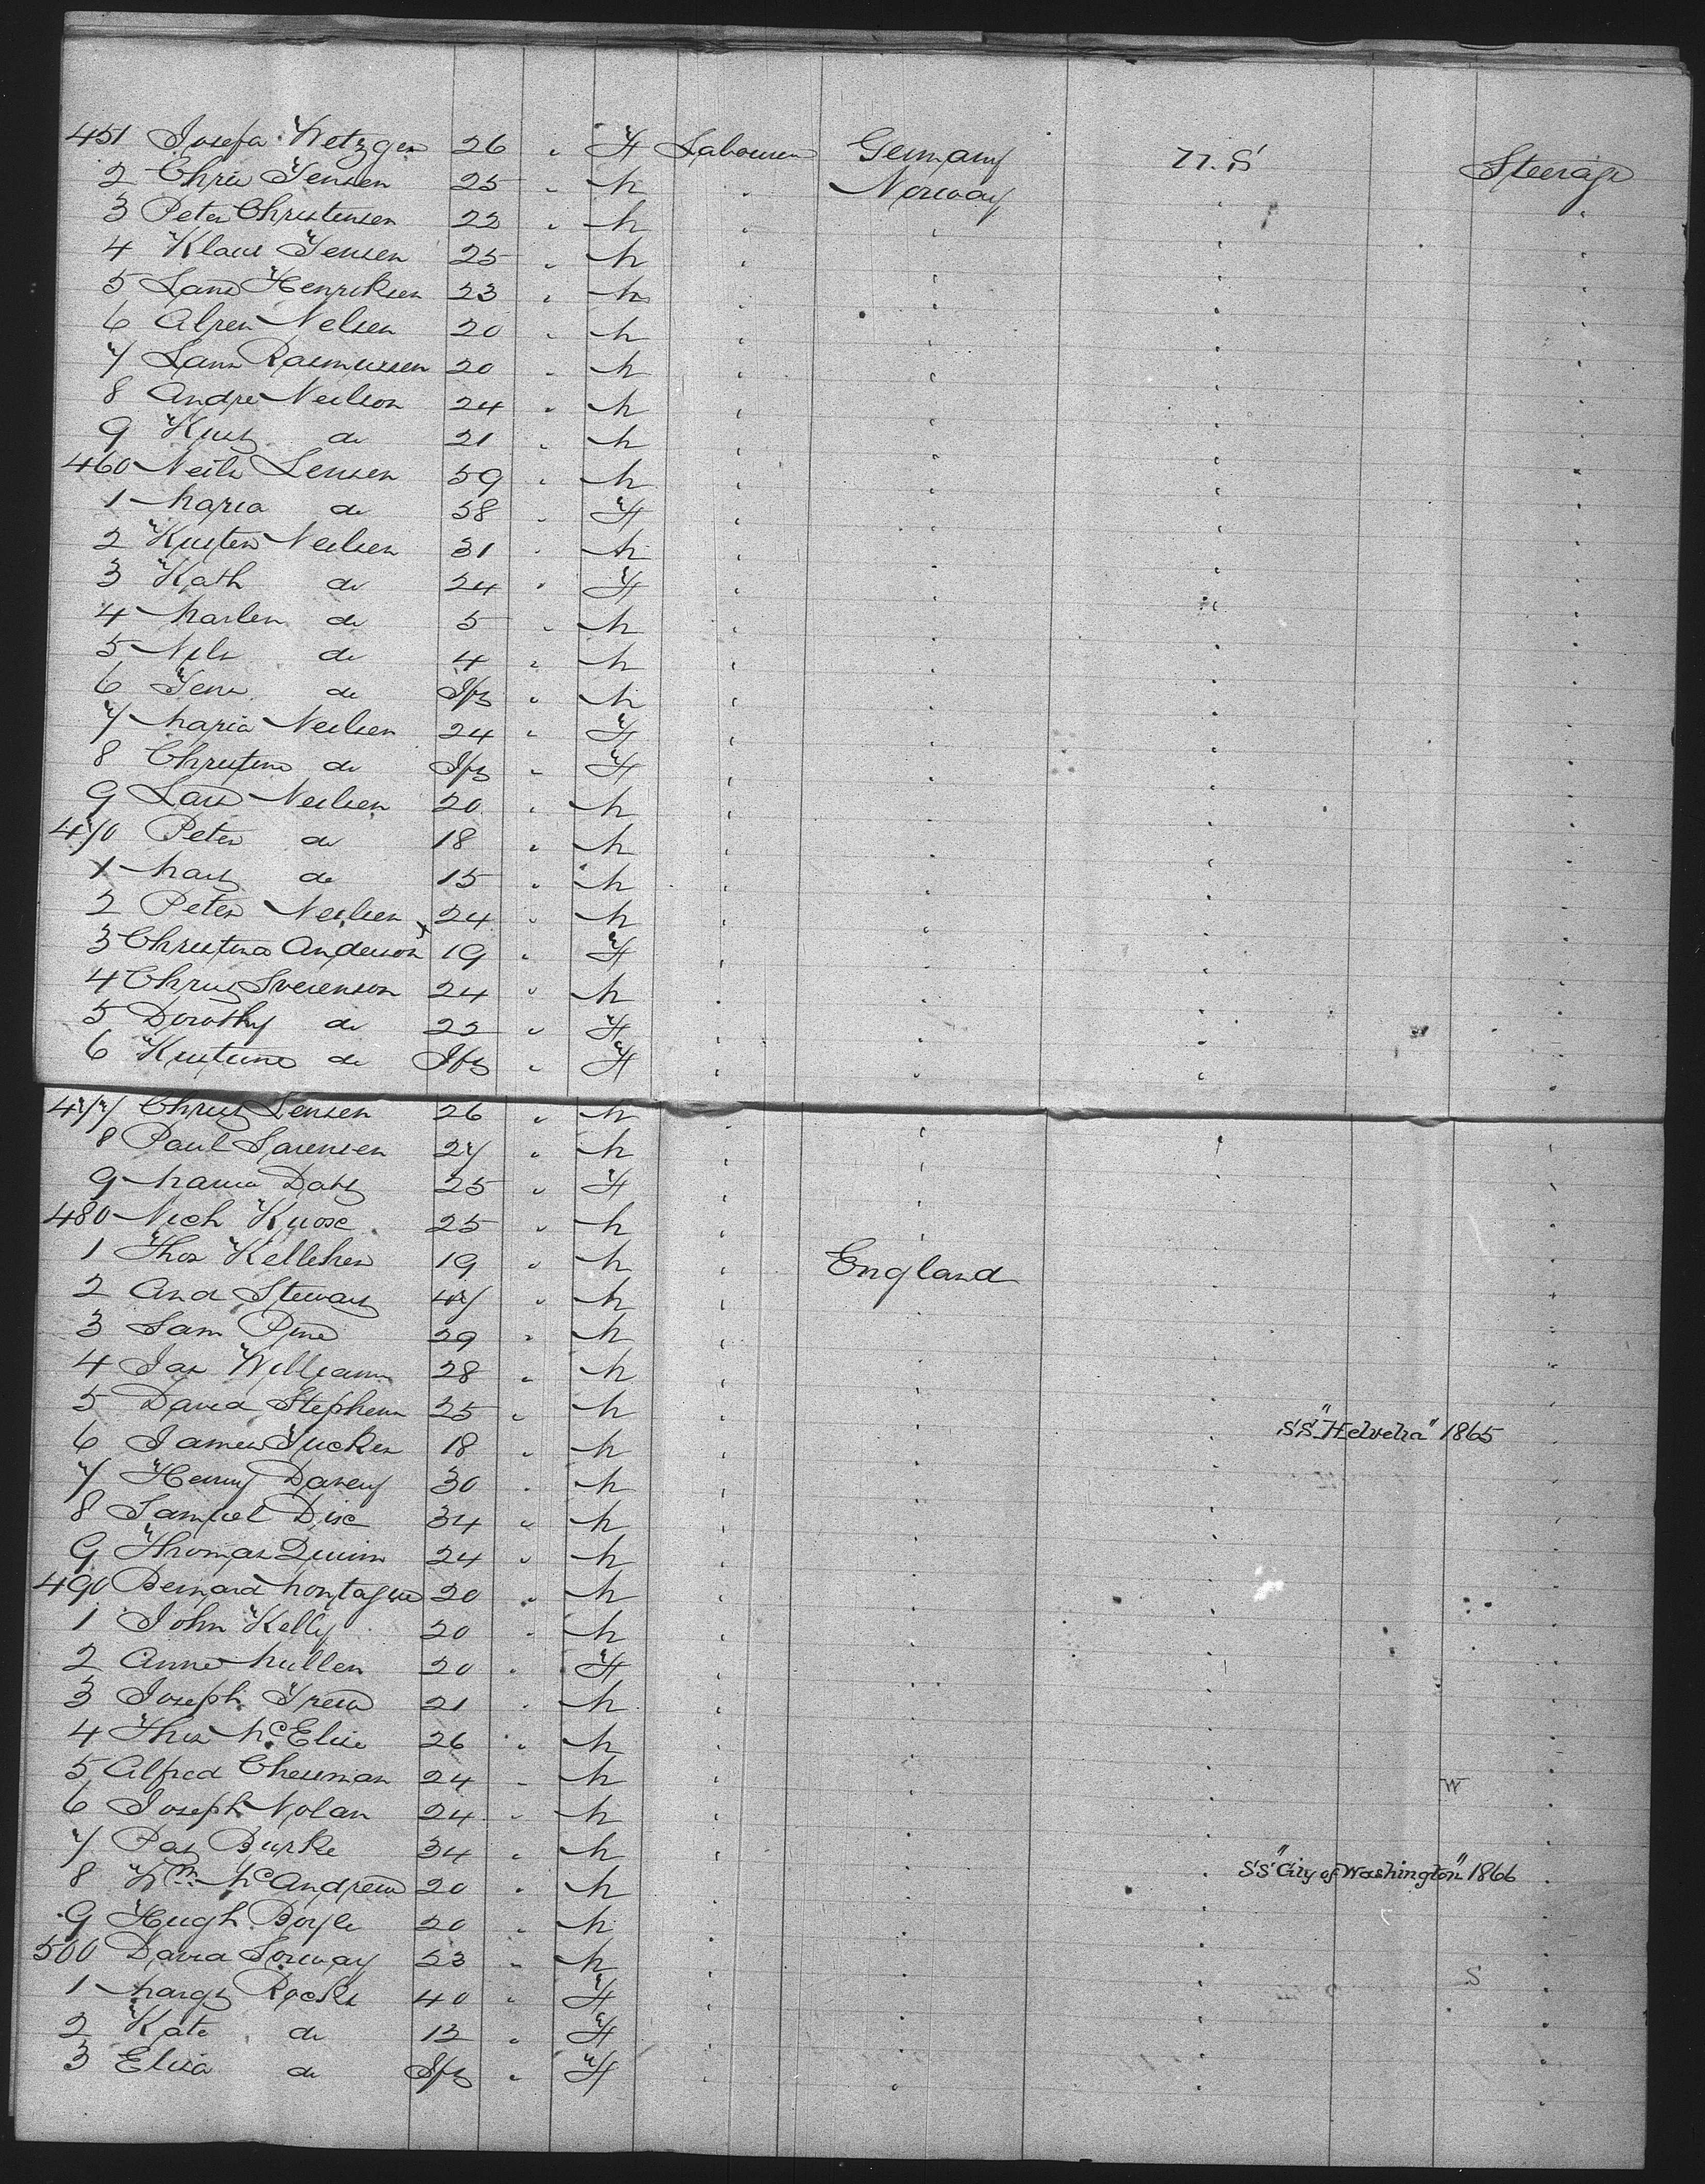 451 Josefa Metzger 26 " F Labourer Germany U.S Steerage
2 Chris Jensen 25 " M " Norway " "
3 Peter Christensen 22 " M " " " "
4 Klaus Jensen 25 " M " " " "
5 Lans Henriksen 23 " M " " " "
6 Alren Nelsen 20 " M " " " "
7 Lans Rasmussen 20 " M " " " "
8 Andre Neilson 24 " M " " " "
9 do 21 " M " " " "
460 Neils Jensen 59 " M " " " "
1 Maria do 58 " F " " " "
2 Kristen Neilsen 31 " M " " " "
3 Kath do 24 " F " " " "
4 Marlen do 5 " M " " " "
5 Nils do 4 " M " " " "
6 Jens do Inft " M " " " "
7 Maria Neilsen 24 " F " " " "
8 Christine do Inft " F " " " "
9 Lars Neilsen 20 " M " " " "
470 Peter do 18 " M " " " "
1 Mart do 15 " M " " " "
2 Peter Neilsen 24 " M " " " "
3 Christina Anderson 19 " F " " " "
4 Christ Sverenson 24 " M " " " "
5 Dorothy do 22 " F " " " "
6 Kristine do Inft " F " " " "
477 Christ Jensen 26 " M " " " "
8 Paul Sarensen 27 " M " " " "
9 Maria Dahl 25 " F " " " "
480 Nich 25 " M " " " "
1 Thos Kelleher 19 " M " England " "
2 And Stewart 47 " M " " " "
3 Sam Pine 29 " M " " " "
4 Jas Williams 28 " M " " " "
5 David Stephens 25 " M " " " "
S.S. "Helvetia" 1865
6 James Tucker 18 " M " " " "
7 Henry Davey 30 " M " " " "
8 Samuel Dise 34 " M " " " "
9 Thomas Quinn 24 " M " " " "
490 Bernard Montague 20 " M " " " "
1 John Kelly 20 " M " " " "
2 Anne Mullen 20 " F " " " "
3 Joseph 21 " M " " " "
4 Thos McElise 26 " M " " " "
5 Alfred Chesman 24 " M " " " W "
6 Joseph Nolan 24 " M " " " "
7 Pat Burke 34 " M " " " "
S.S. "City of Washington" 1866
8 Wm McAndrew 20 " M " " " "
9 Hugh Boyle 20 " M " " " "
500 David Sorway 23 " M " " " S "
1 Margt Roche 40 " F " " " "
2 Kate do 12 " F " " " "
3 Eliza do Inft " F " " " "